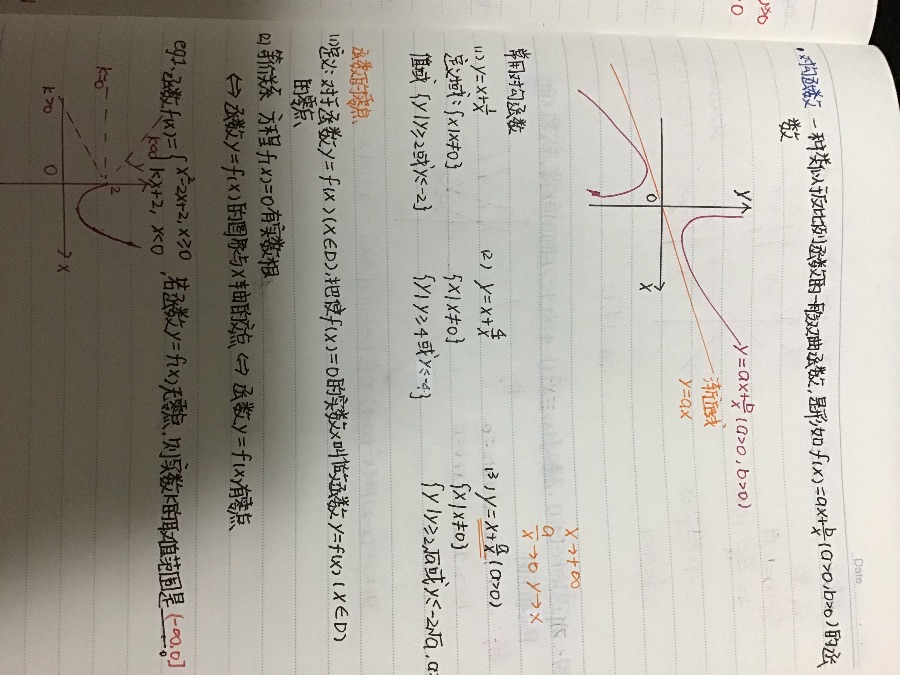 ≥0
0
Date
对勾函数 一种类似于反比例函数的一般双曲函数,是形如f(x)=ax+b/x(a>0,b>0)的函
数
y
0
x
y=ax+b/x(a>0,b>0)
渐近线
y=ax
x→+∞
a/x→0 y→x
常用对勾函数
(1) y=x+1/x (2) y=x+4/x (3) y=x+a/x(a>0)
定义域:{x|x≠0} {x|x≠0} {x|x≠0}
值域 {y|y≥2或y≤-2} {y|y≥4或y≤-4} {y|y≥2√a或y≤-2√a,
函数的零点
(1)定义:对于函数y=f(x)(x∈D),把使f(x)=0的实数x叫做函数y=f(x)(x∈D)
的零点
(2) 等价关系 方程f(x)=0有实数根
⇔ 函数y=f(x)的图象与x轴有交点 ⇔ 函数y=f(x)有零点
eg1.函数f(x)={x²-2x+2,x≥0
kx+2,x<0 ,若函数y=f(x)无零点,则实数k的取值范围是(-∞,0]
k<0
y
2
k=0
k>0
0
x